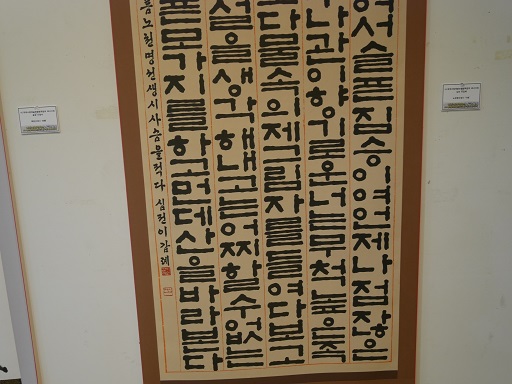 어서슬픈짐승이여언제나점잖은
나관이향기로운너는무척높은족
다물속의제그림자를들여다보고
설을생각해내고는어찌할수없는
픈모가지를하고먼데산을바라본다
름 노천명선생시 사슴을적다 심천이감례